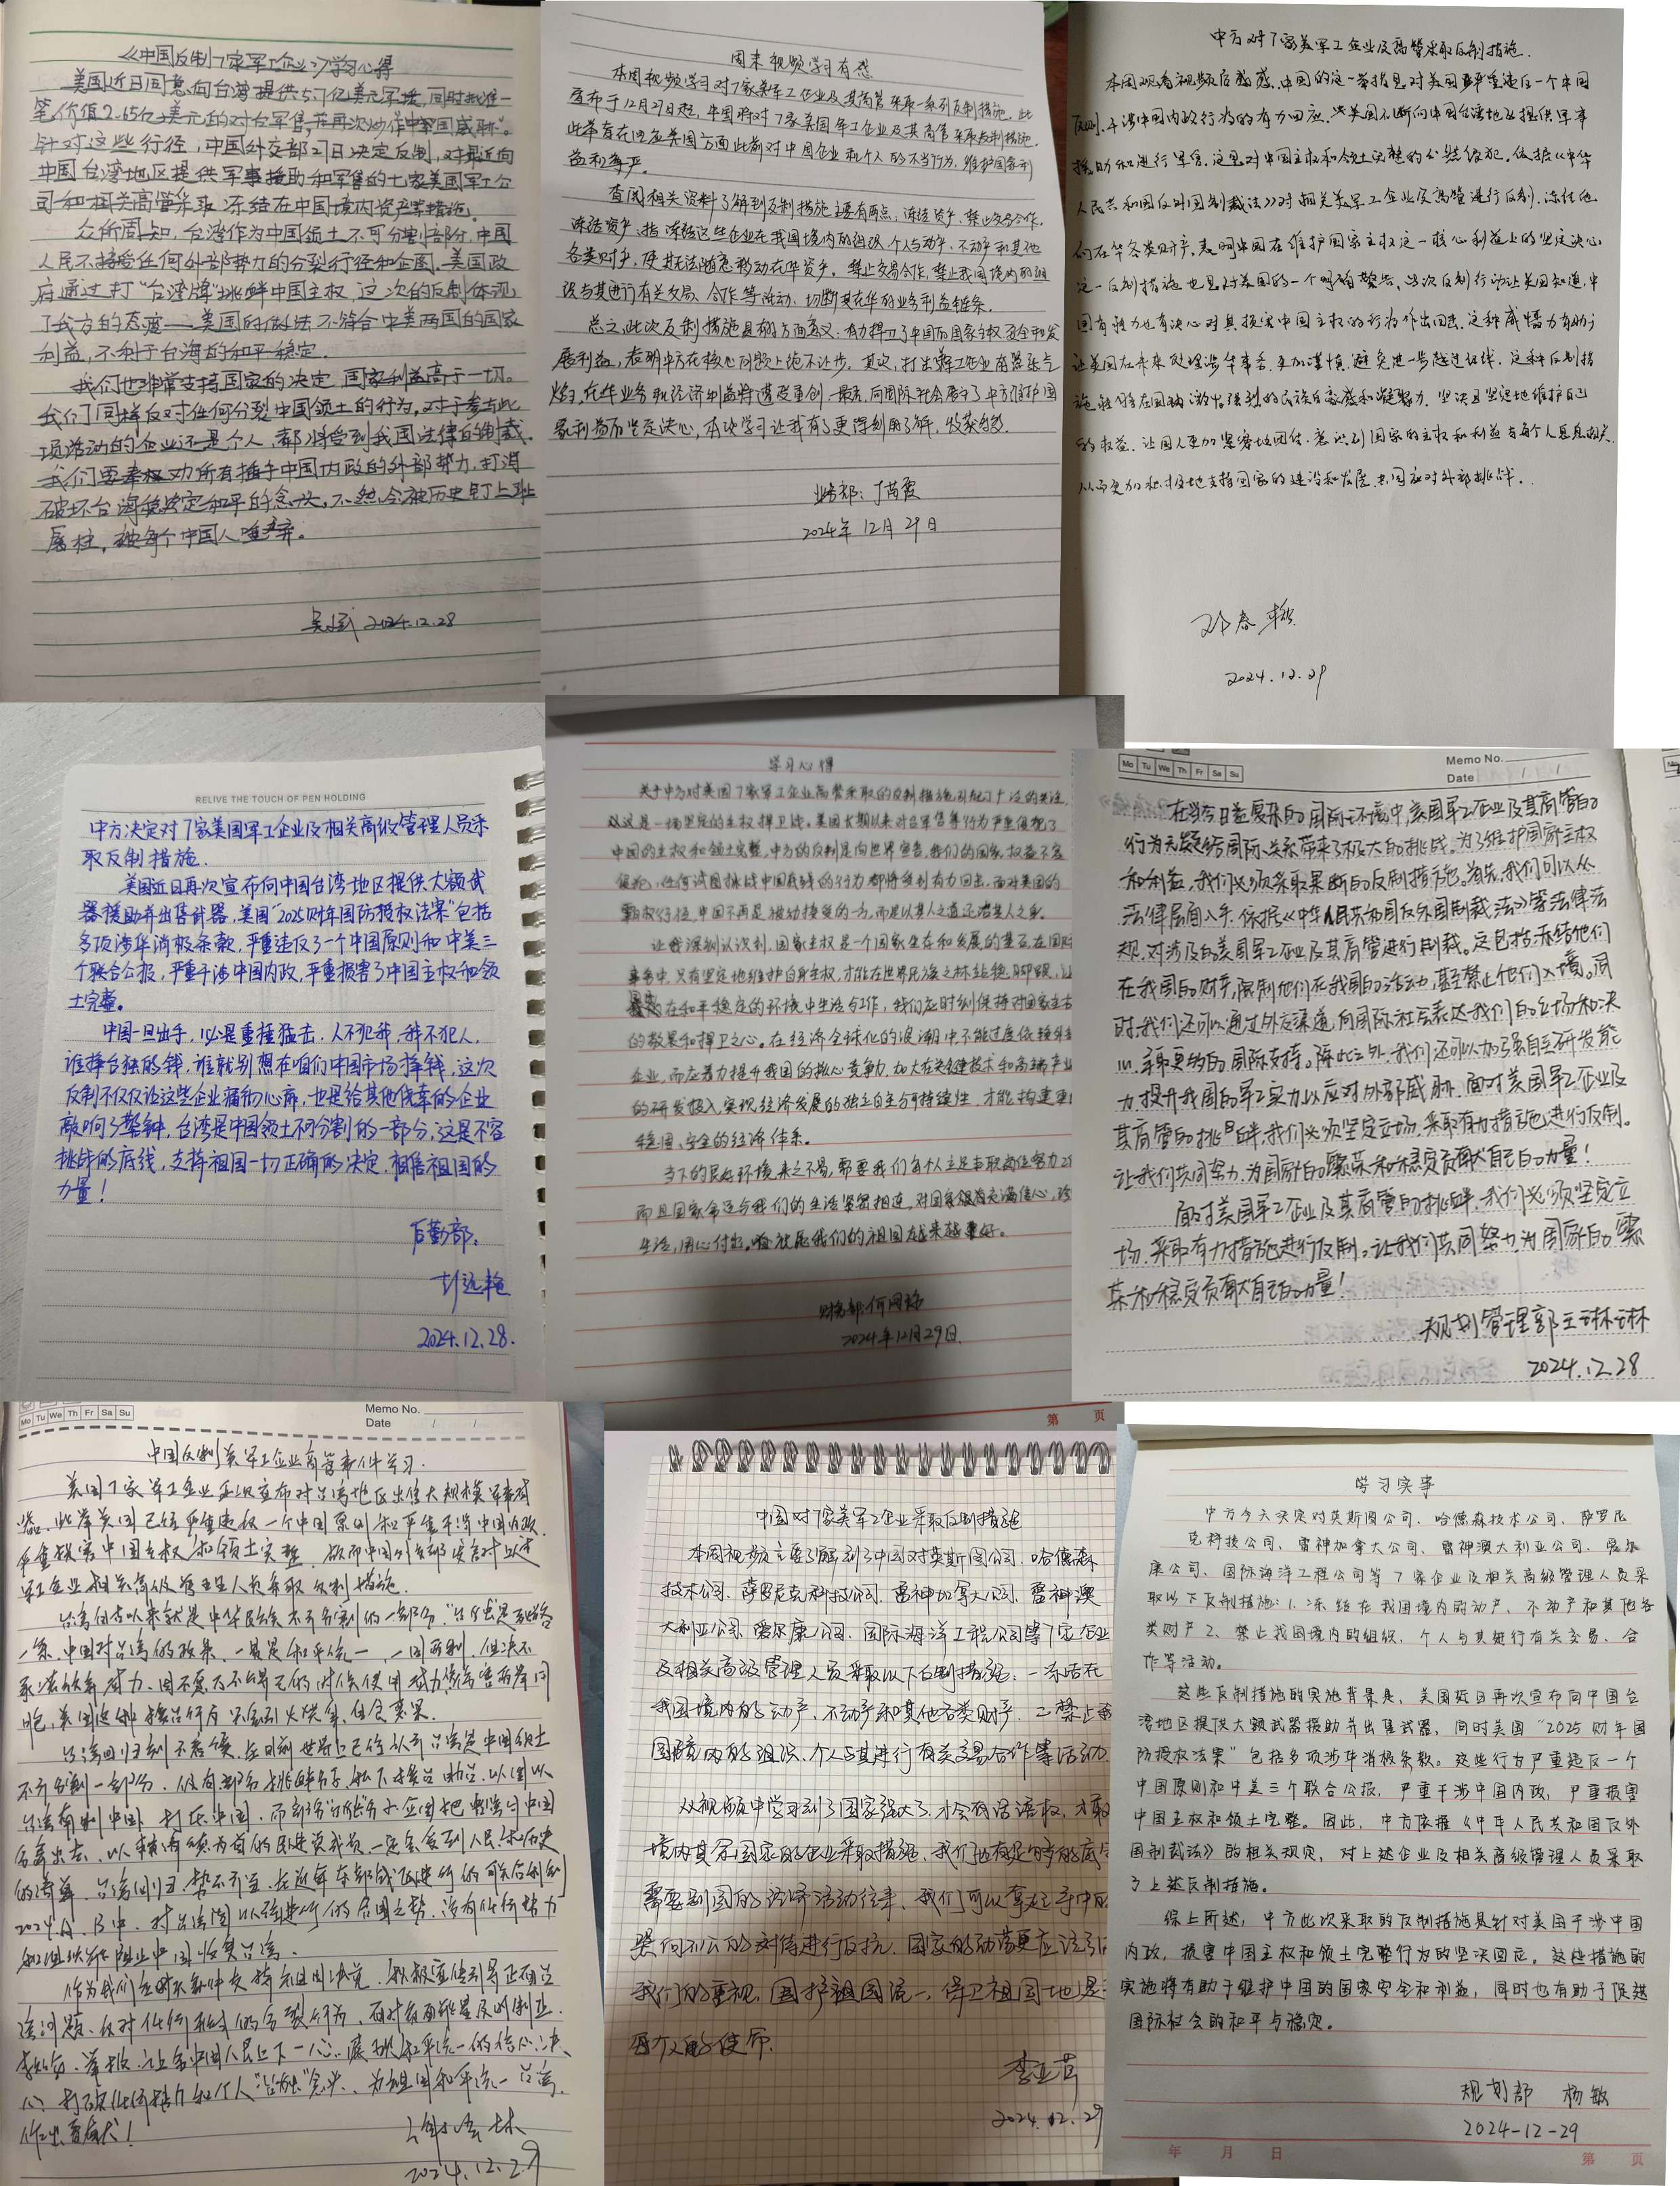 《中国反制7家军工企业》学习心得
美国近日同意向台湾提供5.7亿美元军援,同时批准一
笔价值2.65亿美元的对台军售,并再次炒作"中国威胁"。
针对这些行径,中国外交部27日决定反制,对最近向
中国台湾地区提供军事援助和军售的七家美国军工公
司和相关高管采取冻结在中国境内资产等措施。
众所周知,台湾作为中国领土不可分割部分,中国
人民不接受任何外部势力的分裂行径和企图。美国政
府通过打"台湾牌"挑衅中国主权,这次的反制体现
了我方的态度——美国的做法不符合中美两国的国家
利益,不利于台海的和平稳定。
我们也非常支持国家的决定,国家利益高于一切。
我们同样反对任何分裂中国领土的行为,对于参与此
项活动的企业还是个人,都将受到我国法律的制裁。
我们要奉劝所有插手中国内政的外部势力,打消
破坏台海稳定和平的念头,不然会被历史钉上耻
辱柱,被每个中国人唾弃。
2024.12.28
周末视频学习有感
本周视频学习对7家美军工企业及其高管采取一系列反制措施。此
宣布于12月27日起,中国将对7家美国军工企业及其高管采取反制措施。
此举旨在回应美国方面此前对中国企业和个人的不当行为,维护国家利
益和尊严。
查阅相关资料了解到反制措施主要有两点:冻结资产、禁止交易合作。
冻结资产,指冻结这些企业在我国境内的组织、个人与动产、不动产和其他
各类财产,使其无法随意移动在华资产。禁止交易合作,禁止我国境内的组
织与其进行有关交易、合作等活动,切断其在华的业务利益链条。
总之,此次反制措施具有多方面意义:有力捍卫了中国的国家主权、安全和发
展利益,表明中方在核心问题上绝不让步。其次,打击军工企业嚣张气
焰,在华业务和经济利益将遭受重创。最后,向国际社会展示了中方维护国
家利益的坚定决心,本次学习让我有了更深刻的了解,收获颇多。
业务部:丁芮霞
2024年12月29日
中方对7家美军工企业及高管采取反制措施.
本周观看视频后感感.中国的这一举措是对美国严重违反一个中国
原则,干涉中国内政行为的有力回应.当美国不断向中国台湾地区提供军事
援助和进行军售.这是对中国主权和领土完整的公然侵犯.依据《中华
人民共和国反外国制裁法》对相关美军工企业及高管进行反制.冻结他
们在华各类财产.表明中国在维护国家主权这一核心利益上的坚定决心
这一反制措施也是对美国的一个明确警告.当次反制行动让美国知道,中
国有能力也有决心对其损害中国主权的行为作出回击.这种威慑力有助于
让美国在未来处理涉华事务,更加谨慎,避免进一步越过红线.这种反制措
施能够在国内激发强烈的民族自豪感和凝聚力.坚决且坚定地维护自己
的权益.让国人更加紧密地团结.意识到国家的主权和利益与每个人息息相关.
从而更加积极地支持国家的建设和发展.共同应对外部挑战.
2024.12.29
RELIVE THE TOUCH OF PEN HOLDING
中方决定对7家美国军工企业及相关高级管理人员采
取反制措施.
美国近日再次宣布向中国台湾地区提供大额武
器援助并出售武器,美国"2025财年国防授权法案"包括
多项涉华消极条款,严重违反了一个中国原则和中美三
个联合公报,严重干涉中国内政,严重损害了中国主权和领
土完整。
中国一旦出手,必是重锤猛击,人不犯我,我不犯人,
谁挣台独的钱,谁就别想在咱们中国市场挣钱,这次
反制不仅仅让这些企业痛彻心扉,也是给其他贪婪的企业
敲响了警钟,台湾是中国领土不可分割的一部分,这是不容
挑战的底线,支持祖国一切正确的决定,相信祖国的
力量!
后勤部:
彭远艳
2024.12.28.
学习心得
关于中方对美国7家军工企业高管采取的反制措施引起了广泛的关注,
从这是一场坚定的主权捍卫战。美国长期以来对台军售等行为严重侵犯了
中国的主权和领土完整,中方的反制是向世界宣告,我们的国家权益不容
侵犯,任何试图挑战中国底线的行为都将受到有力回击,面对美国的
霸权行径,中国不再是被动接受的一方,而是以其人之道还治其人之身。
让我深刻认识到,国家主权是一个国家生存和发展的基石,在国际
事务中,只有坚定地维护自身主权,才能在世界民族之林站稳脚跟,让
在和平稳定的环境中生活与工作,我们应时刻保持对国家主权
的敬畏和捍卫之心。在经济全球化的浪潮中不能过度依赖外
企业,而应着力提升我国的核心竞争力,加大在关键技术和高端产业
的研发投入,实现经济发展的独立自主与可持续性,才能构建更
稳固、安全的经济体系。
当下的良好环境,来之不易,需要我们每个人立足本职岗位努力
而且国家命运与我们的生活紧密相连,对国家充满信心,
生活,用心付出,我们的祖国越来越美好。
财务部:何网
2024年12月29日
第 页
Mo Tu We Th Fr Sa Su
Memo No.
Date / /
在当今日益复杂的国际环境中,美国军工企业及其高管的
行为无疑给国际关系带来了极大的挑战。为了维护国家主权
和利益,我们必须采取果断的反制措施。首先,我们可以从
法律层面入手,依据《中华人民共和国反外国制裁法》等法律法
规,对涉及的美国军工企业及其高管进行制裁。这包括冻结他们
在我国的财产,限制他们在我国的活动,甚至禁止他们入境。同
时,我们还可以通过外交渠道,向国际社会表达我们的立场和决
心,争取更多的国际支持。除此之外,我们还可以加强自主研发能
力,提升我国的军工实力,以应对外部威胁。面对美国军工企业及
其高管的挑衅,我们必须坚定立场,采取有力措施进行反制。
让我们共同努力,为国家的繁荣和稳定贡献自己的力量!
面对美国军工企业及其高管的挑衅,我们必须坚定立
场,采取有力措施进行反制。让我们共同努力,为国家的繁
荣和稳定贡献自己的力量!
规划管理部王琳琳
2024.12.28
Mo Tu We Th Fr Sa Su
Memo No.
Date / /
中国反制美军工企业高管事件学习.
美国7家军工企业再次宣布对台湾地区出售大规模军事武
器.此举美国已经严重违反一个中国原则和严重干涉中国内政.
严重损害中国主权和领土完整.故而中国外交部宣告对上述
军工企业相关高级管理人员采取反制措施.
台湾自古以来就是中华民族不可分割的一部分."台独"是死路
一条.中国对台湾的政策,一最是和平统一,一国两制,但决不
台湾回归刻不容缓,在目前世界上已经认可台湾是中国领土
不可分割一部分.
2024.12.29
中国对7家美军工企业采取反制措施
本周视频主要了解到了中国对英斯图公司、哈德森
技术公司、萨罗尼克科技公司、雷神加拿大公司、雷神澳
大利亚公司、爱尔康公司、国际海洋工程公司等7家企业
及相关高级管理人员采取以下反制措施:一冻结在
我国境内的动产、不动产和其他各类财产.二禁止我
国境内的组织、个人与其进行有关交易合作等活动.
从视频中学习到了国家强大了,才会有话语权,才敢
境内其在国家的企业采取措施,我们也有足够的底气
需要别国的经济活动往来,我们可以拿起手中的
对待进行反抗,国家的动荡更应该引
我们的重视,国护祖国统一,保卫祖国土地是
每个人的使命.
李亚芳
2024.12.29
学习实事
中方今天决定对英斯图公司、哈德森技术公司、萨罗尼
克科技公司、雷神加拿大公司、雷神澳大利亚公司、爱尔
康公司、国际海洋工程公司等7家企业及相关高级管理人员采
取以下反制措施:1、冻结在我国境内的动产、不动产和其他各
类财产2、禁止我国境内的组织、个人与其进行有关交易、合
作等活动。
这些反制措施的实施背景是,美国近日再次宣布向中国台
湾地区提供大额武器援助并出售武器,同时美国"2025财年国
防授权法案"包括多项涉华消极条款。这些行为严重违反一个
中国原则和中美三个联合公报,严重干涉中国内政,严重损害
中国主权和领土完整。因此,中方依据《中华人民共和国反外
国制裁法》的相关规定,对上述企业及相关高级管理人员采取
了上述反制措施。
综上所述,中方此次采取的反制措施是针对美国干涉中国
内政,损害中国主权和领土完整行为的坚决回应。这些措施的
实施将有助于维护中国的国家安全和利益,同时也有助于促进
国际社会的和平与稳定。
规划部 杨敏
2024-12-29
年 月 日
第 页